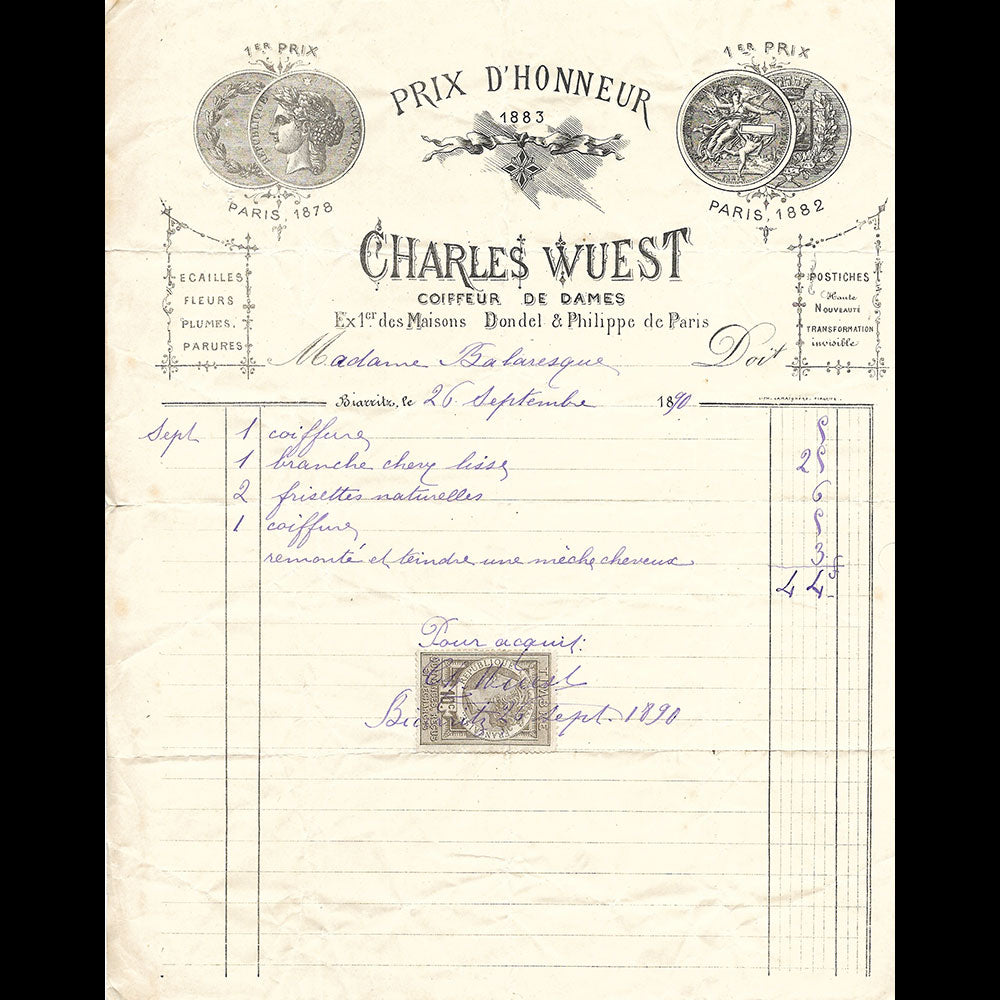 1ER PRIX
RÉPUBLIQUE FRANÇAISE
PARIS, 1878
PRIX D'HONNEUR
1883
1ER PRIX
PARIS, 1882
ECAILLES
FLEURS
PLUMES.
PARURES
CHARLES WUEST
COIFFEUR DE DAMES
Ex 1er des Maisons Dondel & Philippe de Paris
POSTICHES
Haute
NOUVEAUTÉ
TRANSFORMATION
invisible
Madame Balaresque Doit
Biarritz, le 26 Septembre 1890
Sept 1 coiffure 5
1 branche chevx lisse 25
2 frisettes naturelles 6
1 coiffure 5
remonté et teindre une mèche cheveux 3
44 f
Pour acquit:
Ch Wuest
Biarritz 26 Sept. 1890
RÉPUBLIQUE FRANÇAISE
10 C.